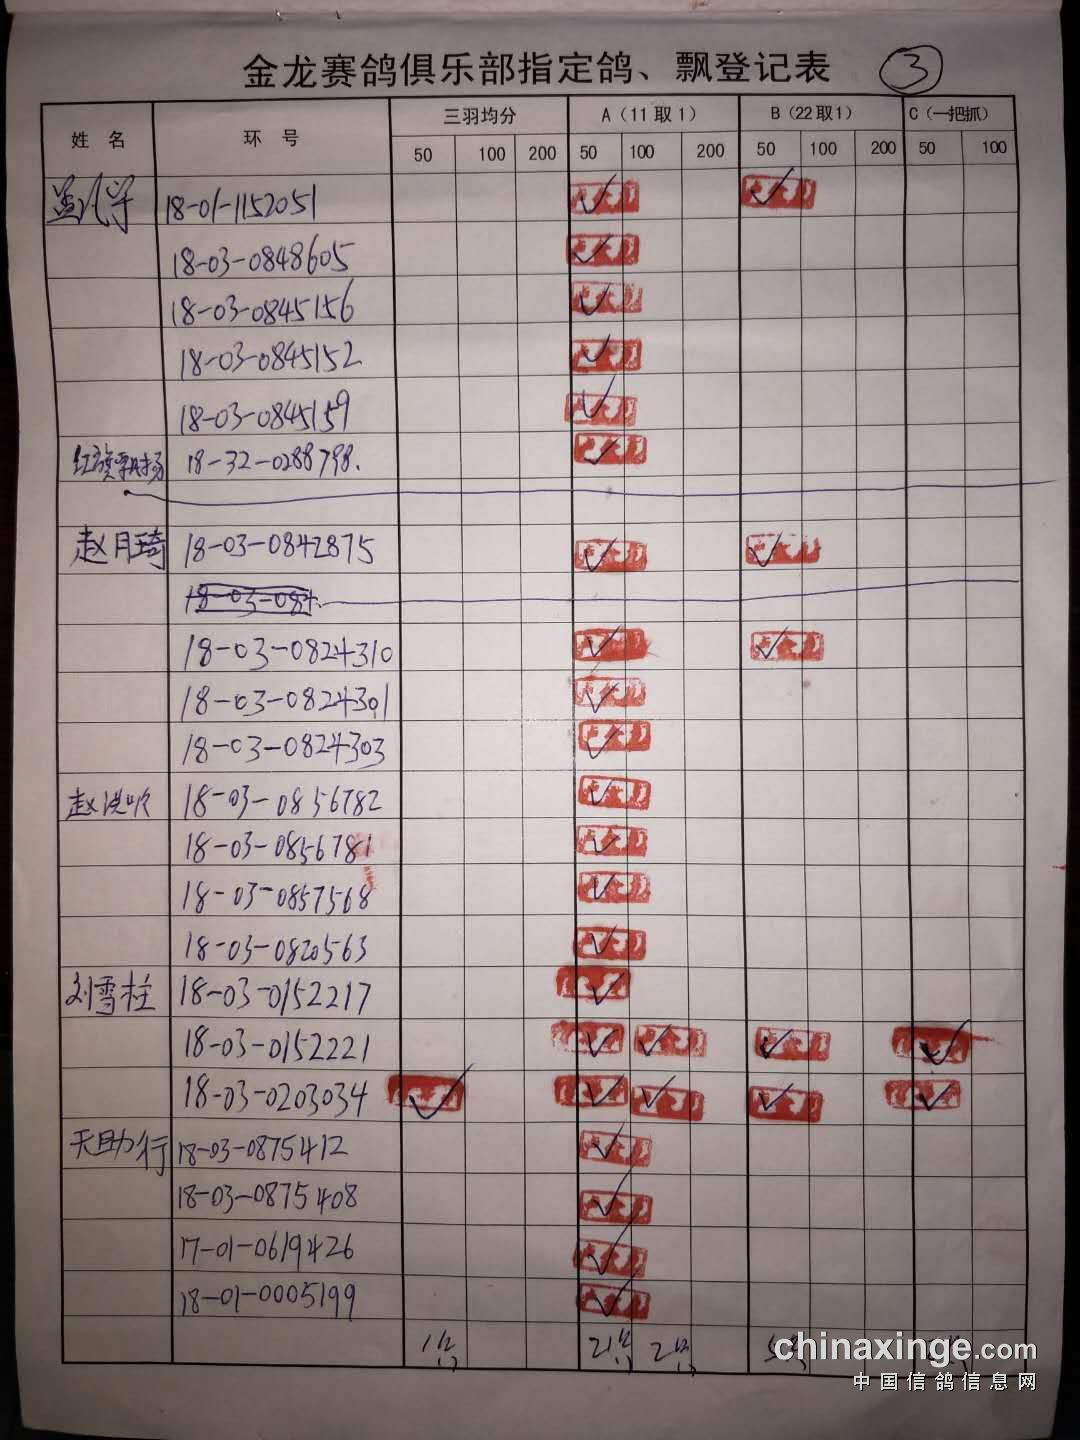 金龙赛鸽俱乐部指定鸽、飘登记表 ③
姓 名 环 号 三羽均分 A（11取1） B（22取1） C（一把抓）
50 100 200 50 100 200 50 100 200 50 100
18-01-1152051 ✓ ✓
18-03-0848605 ✓
18-03-0845156 ✓
18-03-0845152 ✓
18-03-0845159 ✓
红旗飘扬 18-32-0288798. ✓
赵月琦 18-03-0842875 ✓ ✓
18-03-084
18-03-0824310 ✓ ✓
18-03-0824301 ✓
18-03-0824303 ✓
赵洪 18-03-0856782 ✓
18-03-0856781 ✓
18-03-0857568 ✓
18-03-0820563 ✓
刘雪柱 18-03-0152217 ✓
18-03-0152221 ✓ ✓ ✓ ✓
18-03-0203034 ✓ ✓ ✓ ✓ ✓
天助行 18-03-0875412 ✓
18-03-0875408 ✓
17-01-0619426 ✓
18-01-0005199 ✓
1 21 2
chinaxinge.com
中国信鸽信息网